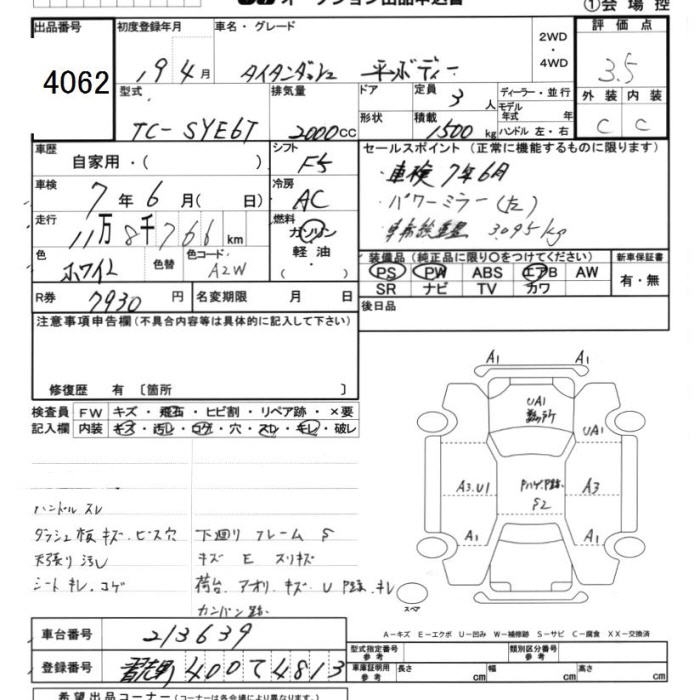 オークション出品申込書
①会場控
出品番号 初度登録年月 車名・グレード 2WD・4WD 評価点
4062 19 4月 タイタンダッシュ 平ボディー 3.5
型式 排気量 ドア 定員 3人 ディーラー・並行 外装 内装
TC-SYE6T 2000cc 形状 積載 1500kg モデル年式 年 ハンドル 左・右 C C
車歴 自家用・( ) シフト F5 セールスポイント(正常に機能するものに限ります)
車検 7年6月( 日) 冷房 AC ・車検 7年6月
・パワーミラー(左)
走行 11万8千766km 燃料 ガソリン・軽油・( ) 3095kg
色 ホワイト 色替 色コード A2W
装備品(純正品に限り○をつけてください) 新車保証書
PS PW ABS エアB AW 有・無
SR ナビ TV カワ
R券 7930円 名変期限 月 日 後日品
注意事項申告欄(不具合内容等は具体的に記入して下さい)
修復歴 有〔箇所 〕
検査員 FW キズ・飛石・ヒビ割・リペア跡・×要
記入欄 内装 キズ・汚レ・コゲ・穴・スレ・キレ・破レ
A1 A1
UA1
UA1
A3.U1 A3
S2
A1 A1
スペア
ハンドル スレ
ダッシュ板 キズ.ビス穴 下廻り フレーム S
天張り汚レ キズ E スリキズ
シート キレ.コゲ 荷台.アオリ.キズ U P跡.キレ
カンバン跡
A-キズ E-エクボ U-凹み W-補修跡 S-サビ C-腐食 XX-交換済
車台番号 213639 型式指定番号 参考 類別区分番号 参考
登録番号 習志野 400 て 4813 車庫証明用 参考 長さ cm 幅 cm 高さ cm
希望出品コーナー(コーナーは各会場により異なります。)